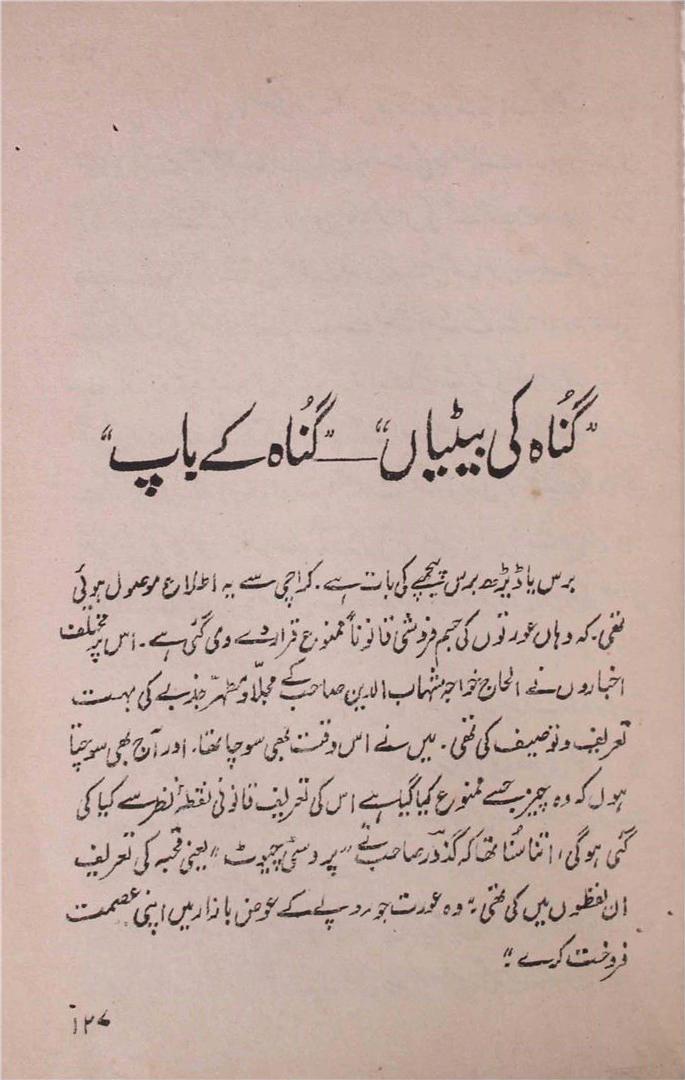 "گناہ کی بیٹیاں" — "گناہ کے باپ"
برس یا ڈیڑھ برس پیچھے کی بات ہے۔ کراچی سے یہ اطلاع موصول ہوئی
تھی۔ کہ وہاں عورتوں کی جسم فروشی قانوناً ممنوع قرار دے دی گئی ہے۔ اس پر مختلف
اخباروں نے الحاج خواجہ شہاب الدین صاحب کے مجلّا و مطہّر جذبے کی بہت
تعریف و توصیف کی تھی۔ میں نے اس وقت بھی سوچا تھا۔ اور آج بھی سوچتا
ہوں کہ وہ چیز جسے ممنوع کیا گیا ہے اس کی تعریف قانونی نقطۂ نظر سے کیا کی
گئی ہوگی، اتنا سنا تھا کہ گذدر صاحب نے "پروسٹی چیوٹ" یعنی قحبہ کی تعریف
ان لفظوں میں کی تھی۔ "وہ عورت جو روپے کے عوض بازار میں اپنی عصمت
فروخت کرے۔"
۱۲۷